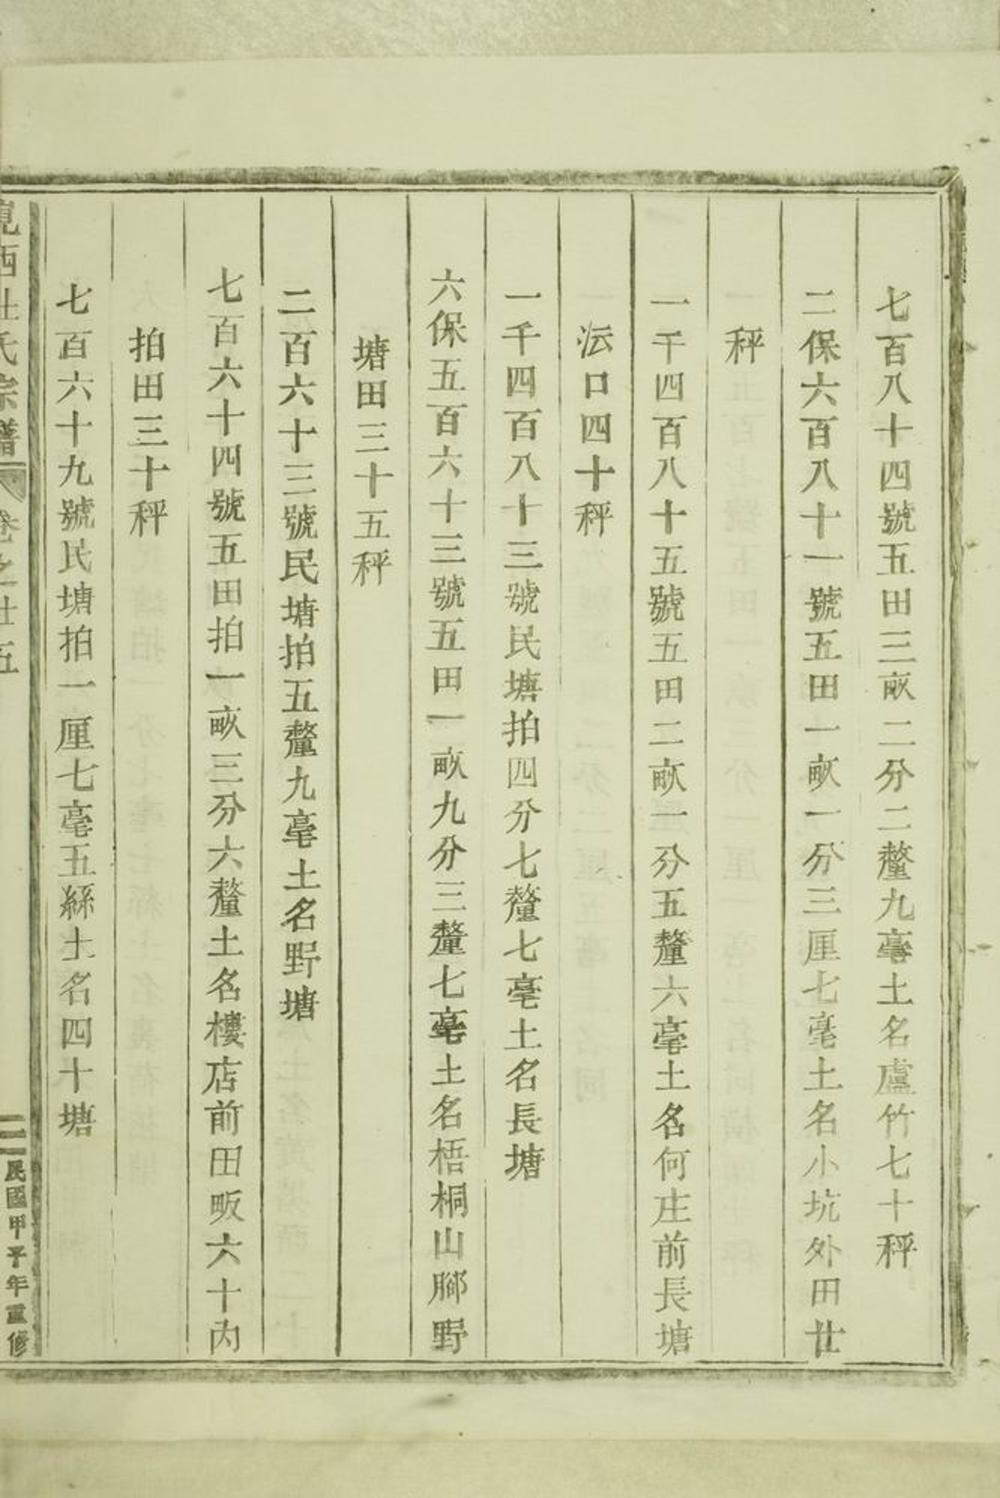 七百八十四號五田三畝二分二釐九毫土名盧竹七十秤
二保六百八十一號五田一畝一分三厘七毫土名小坑外田廿
秤
一千四百八十五號五田二畝一分五釐六毫土名何庄前長塘
沄口四十秤
一千四百八十三號民塘拍四分七釐七毫土名長塘
六保五百六十三號五田一畝九分三釐七毫土名梧桐山腳野
塘田三十五秤
二百六十三號民塘拍五釐九毫土名野塘
七百六十四號五田拍一畝三分六釐土名樓店前田畈六十內
拍田三十秤
七百六十九號民塘拍一厘七毫五絲土名四十塘
西杜氏宗譜
卷之
五
民國甲子年重修